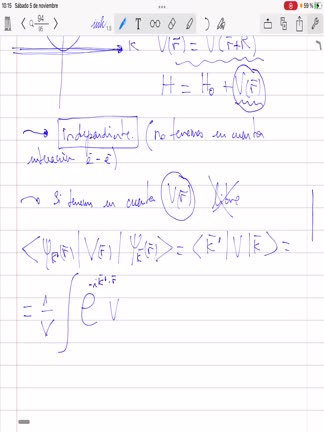 10:15 Sábado 5 de noviembre
59 %
94
(95)
1.5
K V(r̄) = V(r̄+R̄)
H = H₀ + V(r̄)
→ Independiente. (no tenemos en cuenta
interacción ē - ē)
→ Si tenemos en cuenta V(r̄) libre
⟨ψk̄'(r̄) | V(r̄) | ψk̄(r̄)⟩ = ⟨k̄' | V | k̄⟩ =
= 1/V ∫ e^(-ik̄'·r̄) V